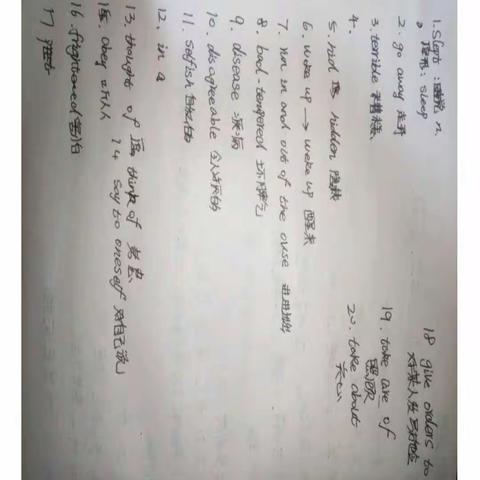 1. Slept: 睡觉 n.
原形: sleep
2. go away 走开
3. terrible 糟糕
4.
5. hid 原 hidden 隐藏
6. woke up → wake up 醒来
7. run in and out of the ouse 进进出出
8. bad-tempered 坏脾气
9. disease 疾病
10. disagreeable 令人讨厌的
11. selfish 自私的
12. in a
13. thought of 原 think of 考虑
14 say to oneself 对自己说
15. Obey
16. frightened 害怕
17
18 give orders to
19. take care of
照顾
20. take about
关心